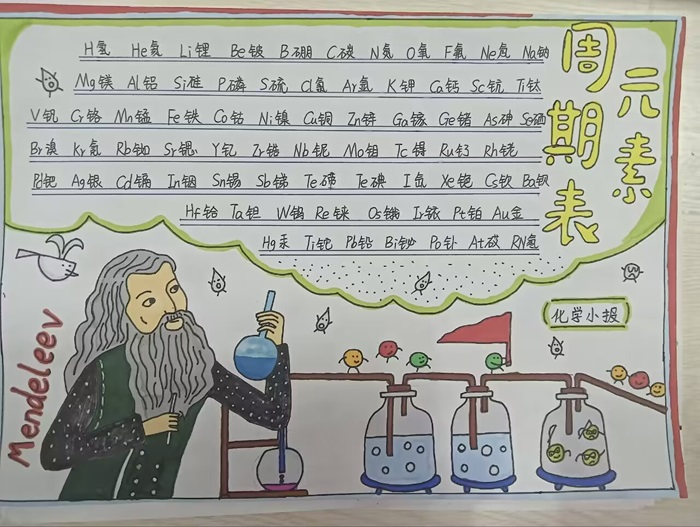 元素
周期表
H氢 He氦 Li锂 Be铍 B硼 C碳 N氮 O氧 F氟 Ne氖 Na钠
Mg镁 Al铝 Si硅 P磷 S硫 Cl氯 Ar氩 K钾 Ca钙 Sc钪 Ti钛
V钒 Cr铬 Mn锰 Fe铁 Co钴 Ni镍 Cu铜 Zn锌 Ga镓 Ge锗 As砷 Se硒
Br溴 Kr氪 Rb铷 Sr锶 Y钇 Zr锆 Nb铌 Mo钼 Tc锝 Ru钌 Rh铑
Pd钯 Ag银 Cd镉 In铟 Sn锡 Sb锑 Te碲 Te碘 I氙 Xe铯 Cs钡 Ba钡
Hf铪 Ta钽 W钨 Re铼 Os锇 Ir铱 Pt铂 Au金
Hg汞 Ti铊 Pb铅 Bi铋 Po钋 At砹 RN氡
化学小报
Mendeleev